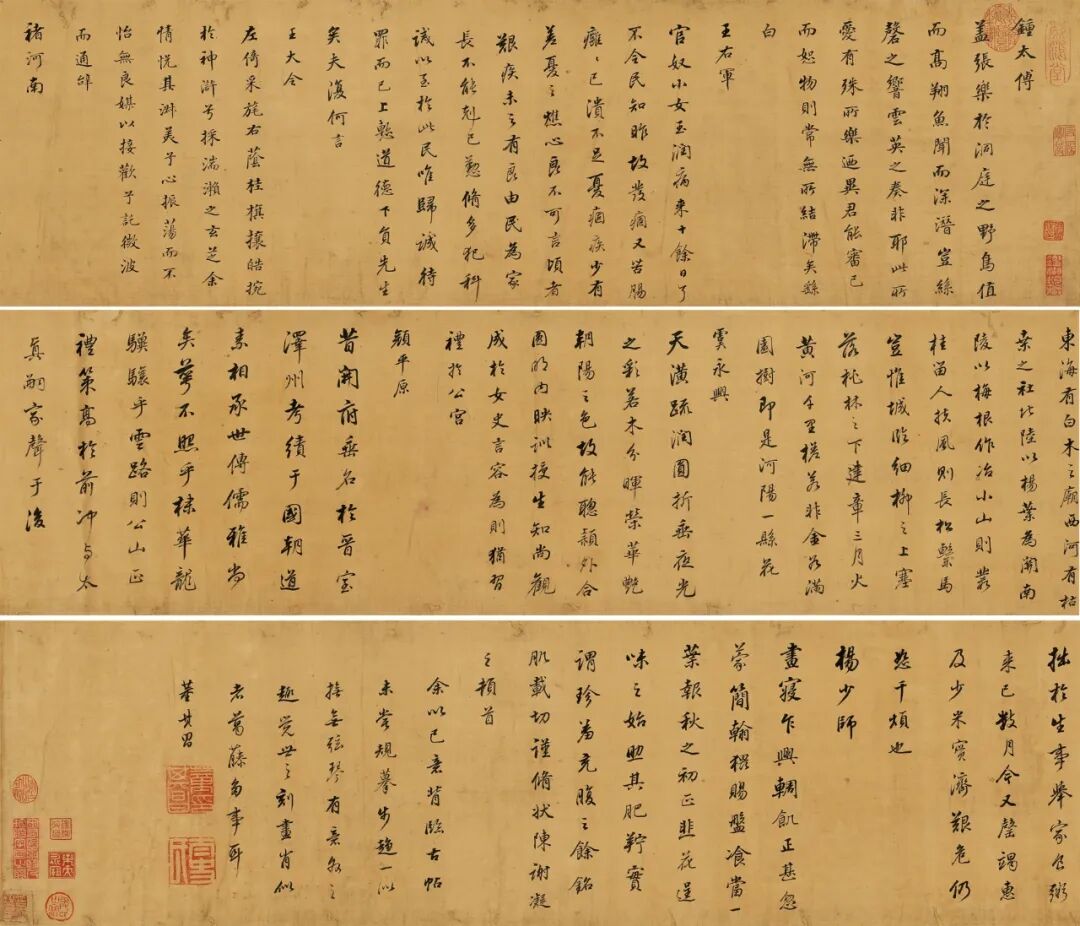 鍾太傅
蓋張樂於洞庭之野鳥值
而高翔魚聞而深潛豈絲
磬之響雲英之奏非耶此所
愛有殊所樂迺異君能審己
而恕物則常無所結滯矣繇
白
王右軍
官奴小女玉潤病來十餘日了
不令民知昨故發痼又苦腸
癰癰已潰不足憂痼疾少有
差憂之燋心良不可言頃者
艱疾未之有良由民為家
長不能剋己懃脩多犯科
誡以至於此民唯歸誠待
罪而已上慙道德下負先生
矣夫復何言
王大令
左倚采旄右蔭桂旗攘皓捥
於神滸兮採湍瀨之玄芝余
情恱其淑美兮心振蕩而不
怡無良媒以接歡兮託微波
而通辭
褚河南
東海有白木之廟西河有枯
桑之社北陸以楊葉為關南
陵以梅根作冶小山則叢
桂留人扶風則長松繫馬
豈惟城臨細柳之上塞
落桃林之下建章三月火
黃河千里槎若非金谷滿
園樹即是河陽一縣花
虞永興
天潢疏潤圓折垂夜光
之彩若木分暉榮華艷
朝陽之色故能聰穎外合
圓明內映訓授生知尚觀
成於女史言容為則猶習
禮於公宮
顏平原
昔開府垂名於晉室
澤州考績于國朝道
素相承世傳儒雅尚
矣萼不照乎棣華龍
驥驤乎雲路則公山正
禮策高於前沖與太
真嗣家聲于後
拙於生事舉家食粥
來已數月今又罄竭惠
及少米實濟艱危仍
恕干煩也
楊少師
晝寢乍興輖飢正甚忽
蒙簡翰猥賜盤飡當一
葉報秋之初正韭花逞
味之始助其肥羜實
謂珍羞充腹之餘銘
肌載切謹脩狀陳謝凝
之頓首
余以己意背臨古帖
未嘗規摹步趨一似
撫無弦琴有意外之
趣覺世之刻畫肖似
者葛藤多事耳
董其昌